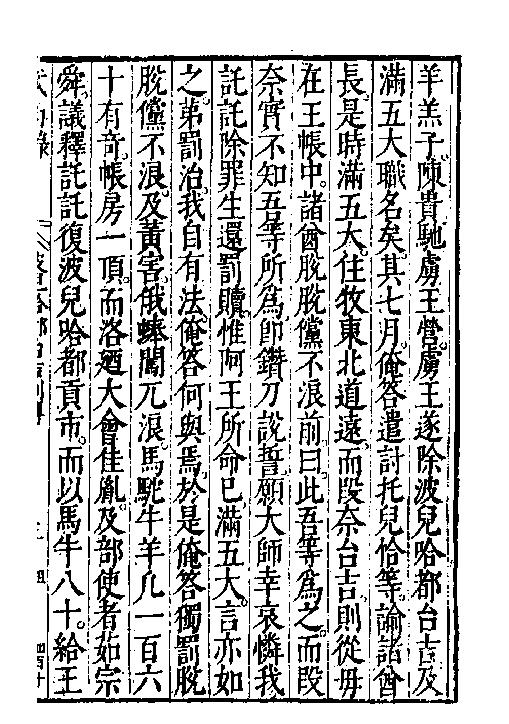 羊羔子陳貴馳虜王營虜王遂除波兒哈都台吉及
滿五大職名矣其七月俺答遣討托兒恰等諭諸酋
長是時滿五大住牧東北道遠而段奈台吉則從毋
在王帳中諸酋脫脫儻不浪前曰此吾等為之而段
奈實不知吾等所為即鑽刀說誓願大師幸哀憐我
託託除罪生還罰贖惟阿王所命已滿五大言亦如
之弟罰治我自有法俺答何與焉於是俺答獨罰脫
脫儻不浪及黃害俄蜯闖兀浪馬駝牛羊凡一百六
十有奇帳房一頂而洛廼大會佳胤及部使者茹宗
舜議釋託託復波兒哈都貢市而以馬牛八十給王